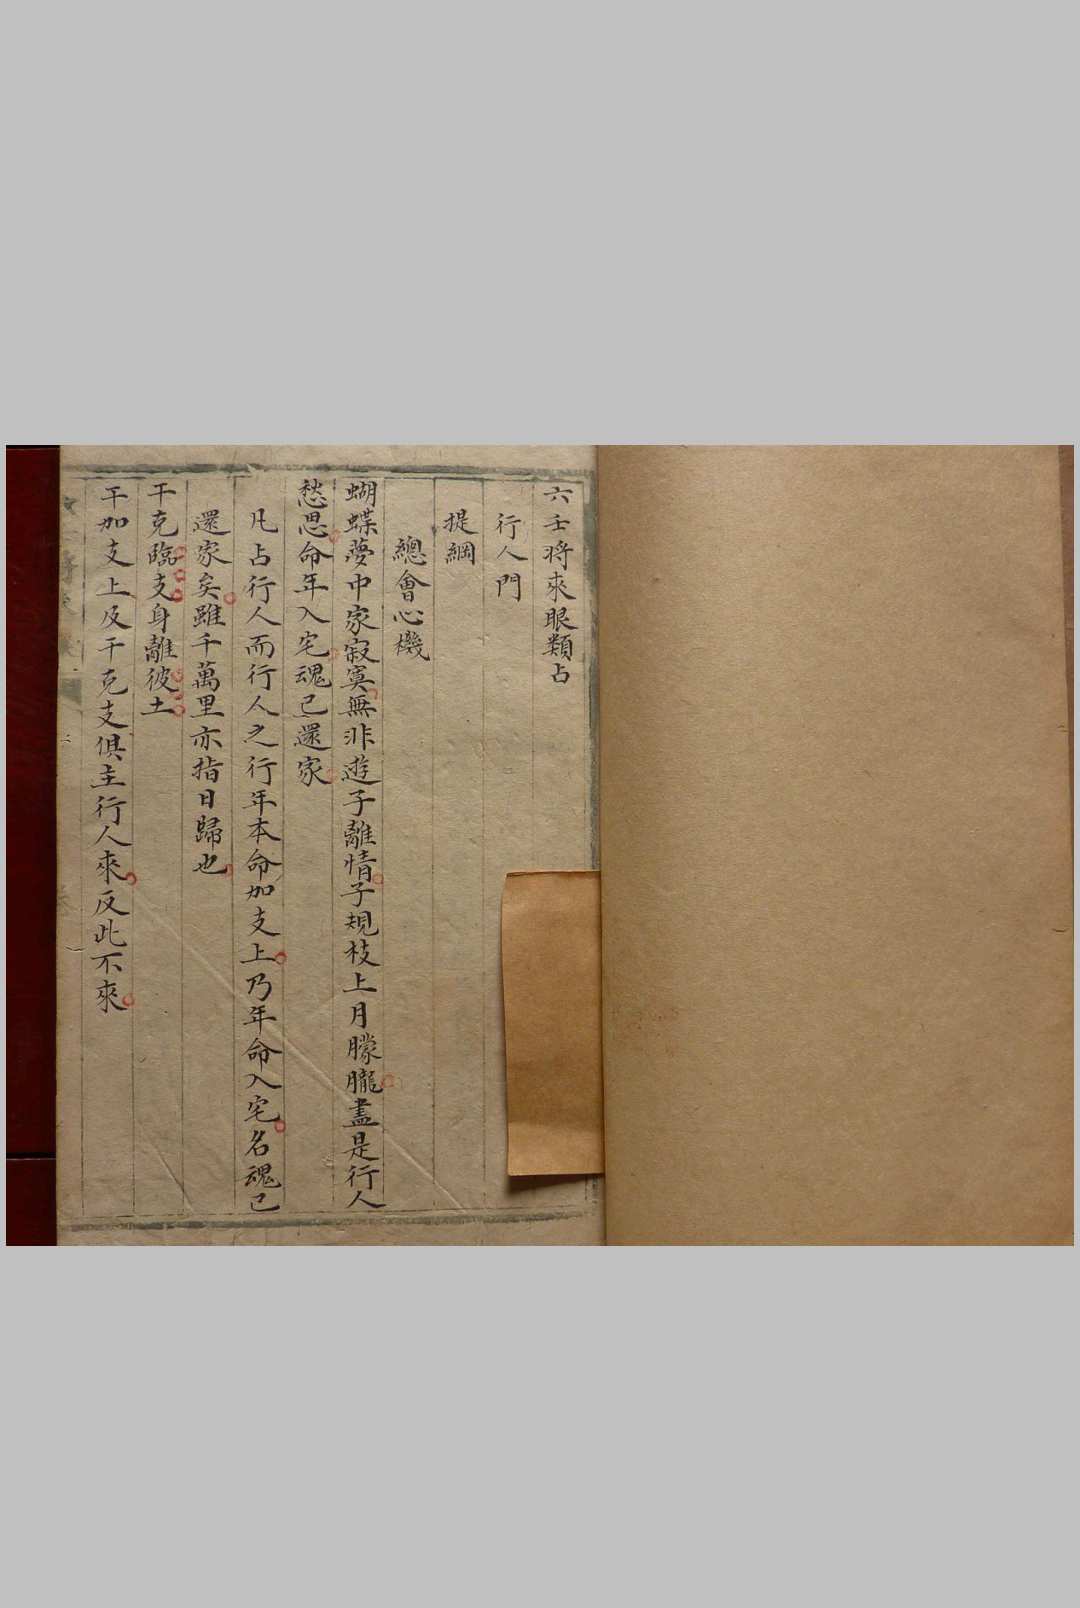 六壬將來眼類占
行人門
提綱
總會心機
蝴蝶夢中家寂寞無非遊子離情子規枝上月朦朧盡是行人
愁思命年入宅魂已還家
凡占行人而行人之行年本命加支上乃年命入宅名魂已
還家矣雖千萬里亦指日歸也
干克臨支身離彼土
干加支上及干克支俱主行人來反此不來